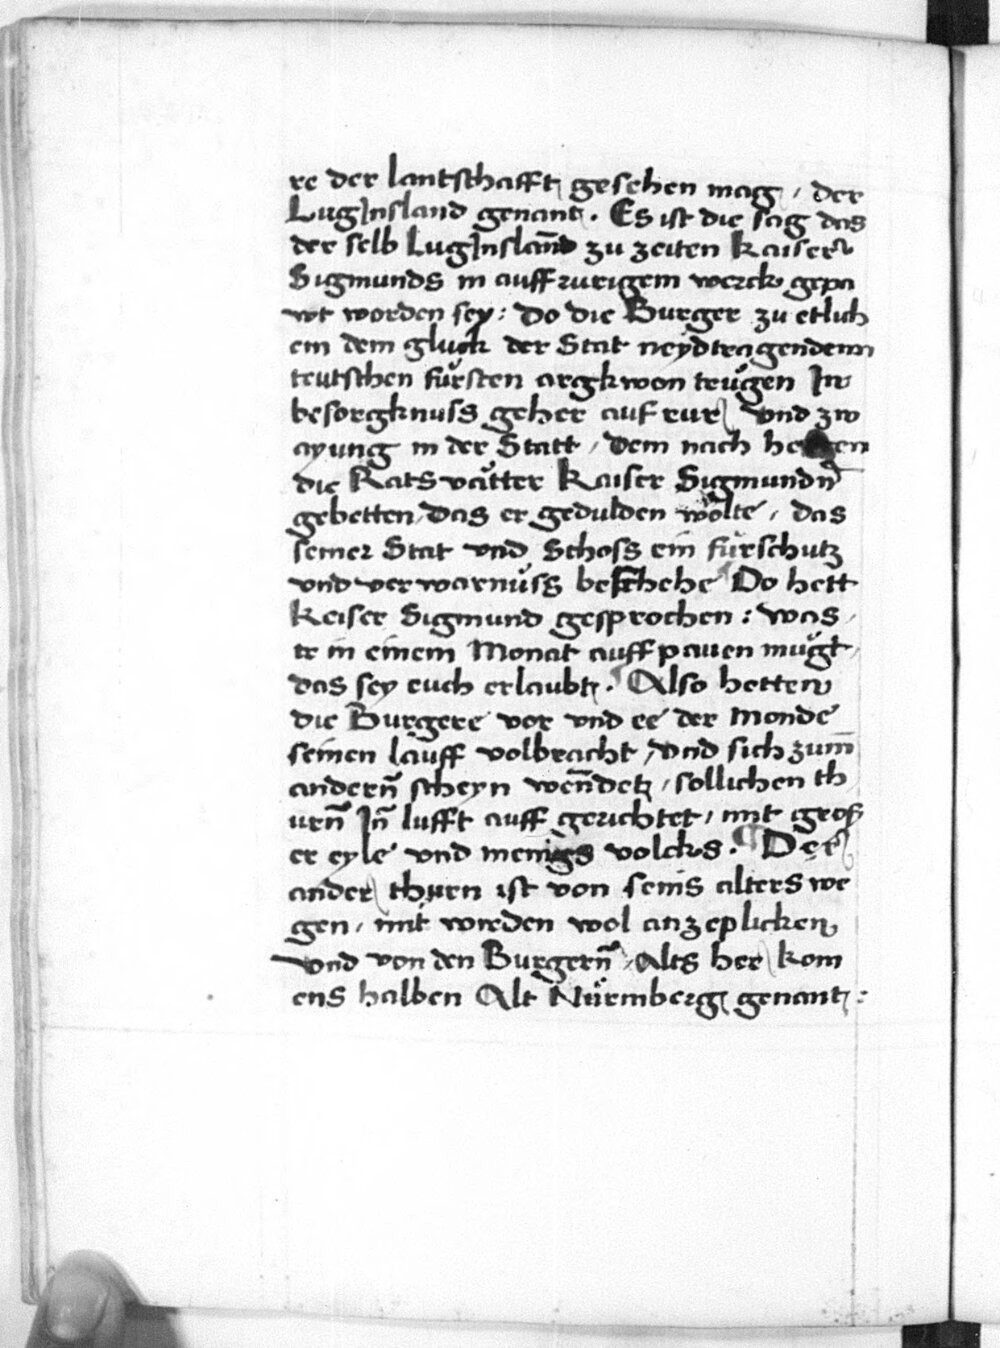 re der lantschafft gesehen mag, der
LugJnsland genant. Es ist die sag das
der selb LugJnslañd zu zeiten Kaiser
Sigmunds in auffrurigem werck gepa
wt worden sey: Do die Burger zu etlich
em dem gluck der Stat neydtragendenn
teutschen fürsten argkwon trůgen Jn
besorgknuss geher aufrur und zw
ayung in der Statt, dem nach
die Ratsvätter Kaiser Sigmundn̄
gebetten, das er gedulden wölte, das
seiner Stat vnd Schoss ein fürschutz
vnd verwarnůss beschehe Do hett
Keiser Sigmund gesprochen: was
ir in einem Monat auffpauen mügt,
das sey euch erlaubt. Also hetten
die Burgere vor vnd ee der Monde
seinen läuff volbracht, vnd sich zum̄
andern̄ scheyn wen̄det, sollichen th
urn̄ Jn̄ lufft auff gerichtet, mit gros
er eyle vnd meniges volcks. Der
ander thurn ist von seins alters we
gen, mit wirden wol anzeplicken
vnd von den Burgern̄, Alts her kom
ens halben Alt Nürmberg genant: